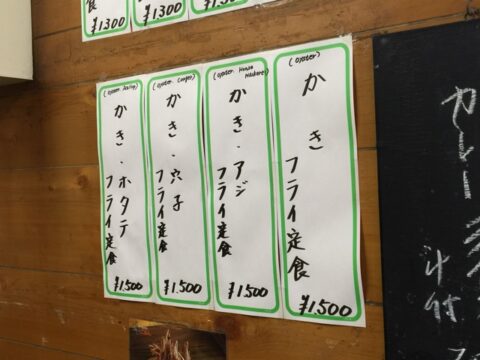 (oyster)
かき
フライ定食
¥1.500
(oyster Horse Mackerel)
かき・アジ
フライ定食
¥1.500
(oyster Conger)
かき・穴子
フライ定食
¥1.500
かき・ホタテ
フライ定食
¥1.500
食
¥1300
¥1.300
汁付